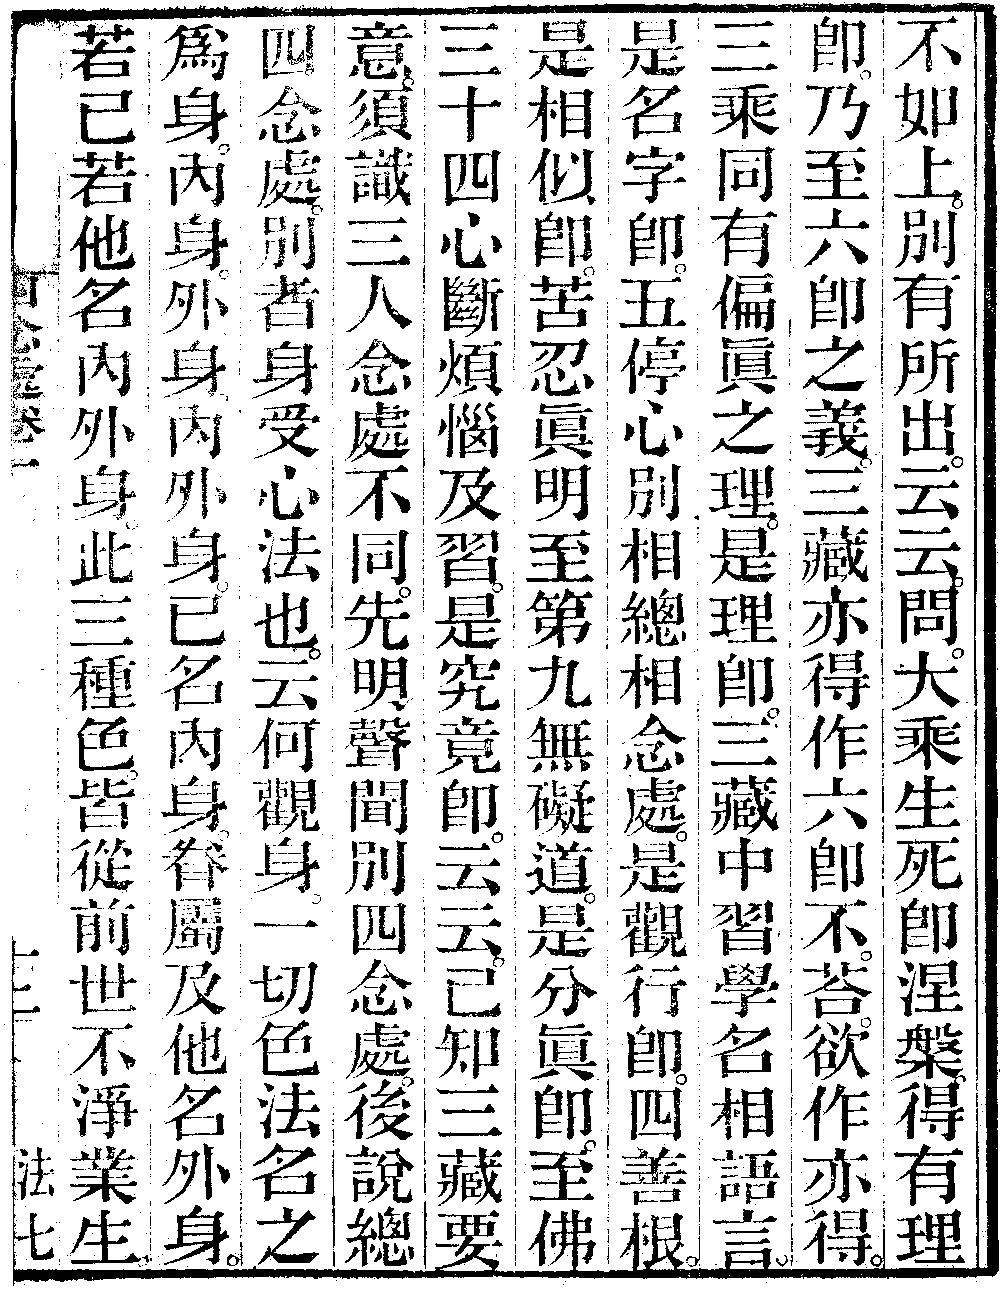 不如上。別有所出。云云。問。大乘生死即涅槃。得有理
即。乃至六即之義。三藏亦得作六即不。荅。欲作亦得。
三乘同有偏眞之理。是理即。三藏中習學名相語言。
是名字即。五停心別相總相念處。是觀行即。四善根。
是相似即。苦忍眞明至第九無礙道。是分眞即。至佛
三十四心斷煩惱及習。是究竟即。云云。已知三藏要
意。須識三人念處不同。先明聲聞別四念處。後說總
四念處。別者身受心法也。云何觀身。一切色法名之
爲身。內身。外身。內外身。己名內身。眷屬及他名外身。
若己若他名內外身。此三種色。皆從前世不淨業生。
四念處卷一
十二
法七